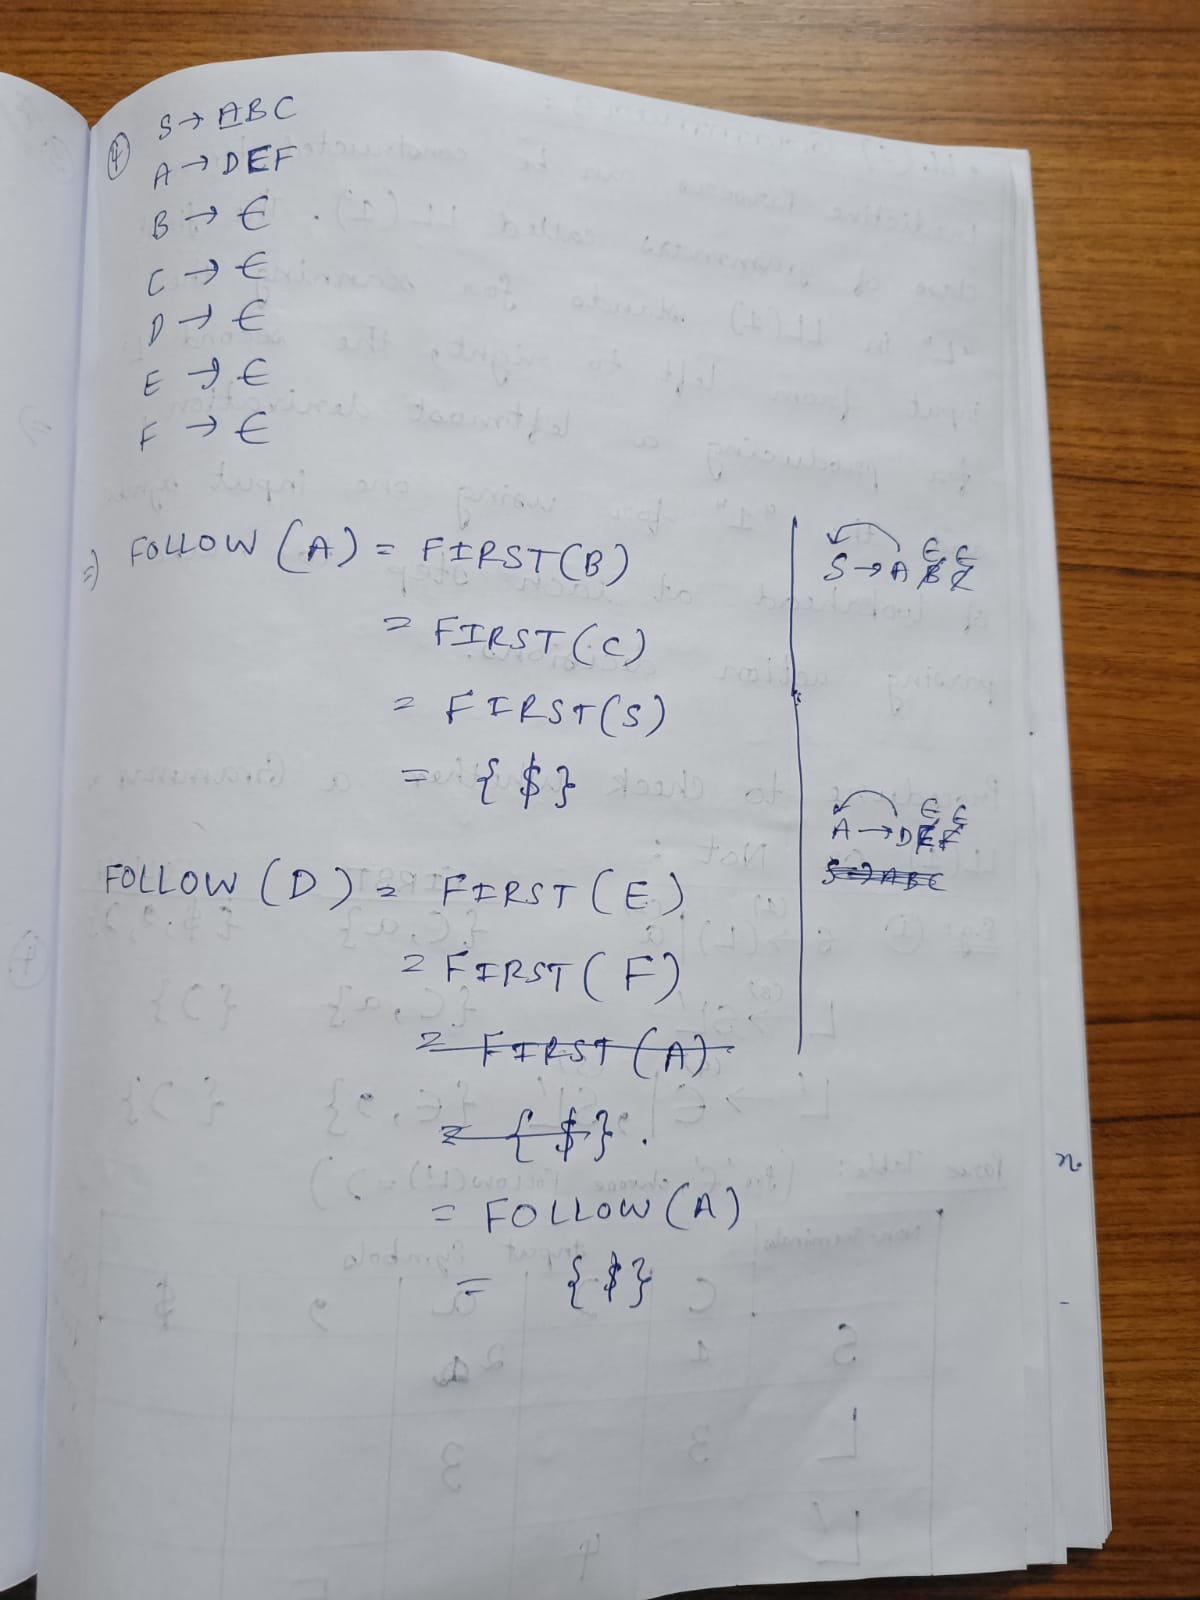 ④ S → ABC
A → DEF
B → ∈
C → ∈
D → ∈
E → ∈
F → ∈
⇒ FOLLOW (A) = FIRST(B)
= FIRST(C)
= FIRST(S)
= {$}
S → A B C
∈ ∈
FOLLOW (D) = FIRST (E)
= FIRST (F)
= FIRST (A)
= {$}.
= FOLLOW (A)
= {$}
A → D E F
∈ ∈
S → ABC